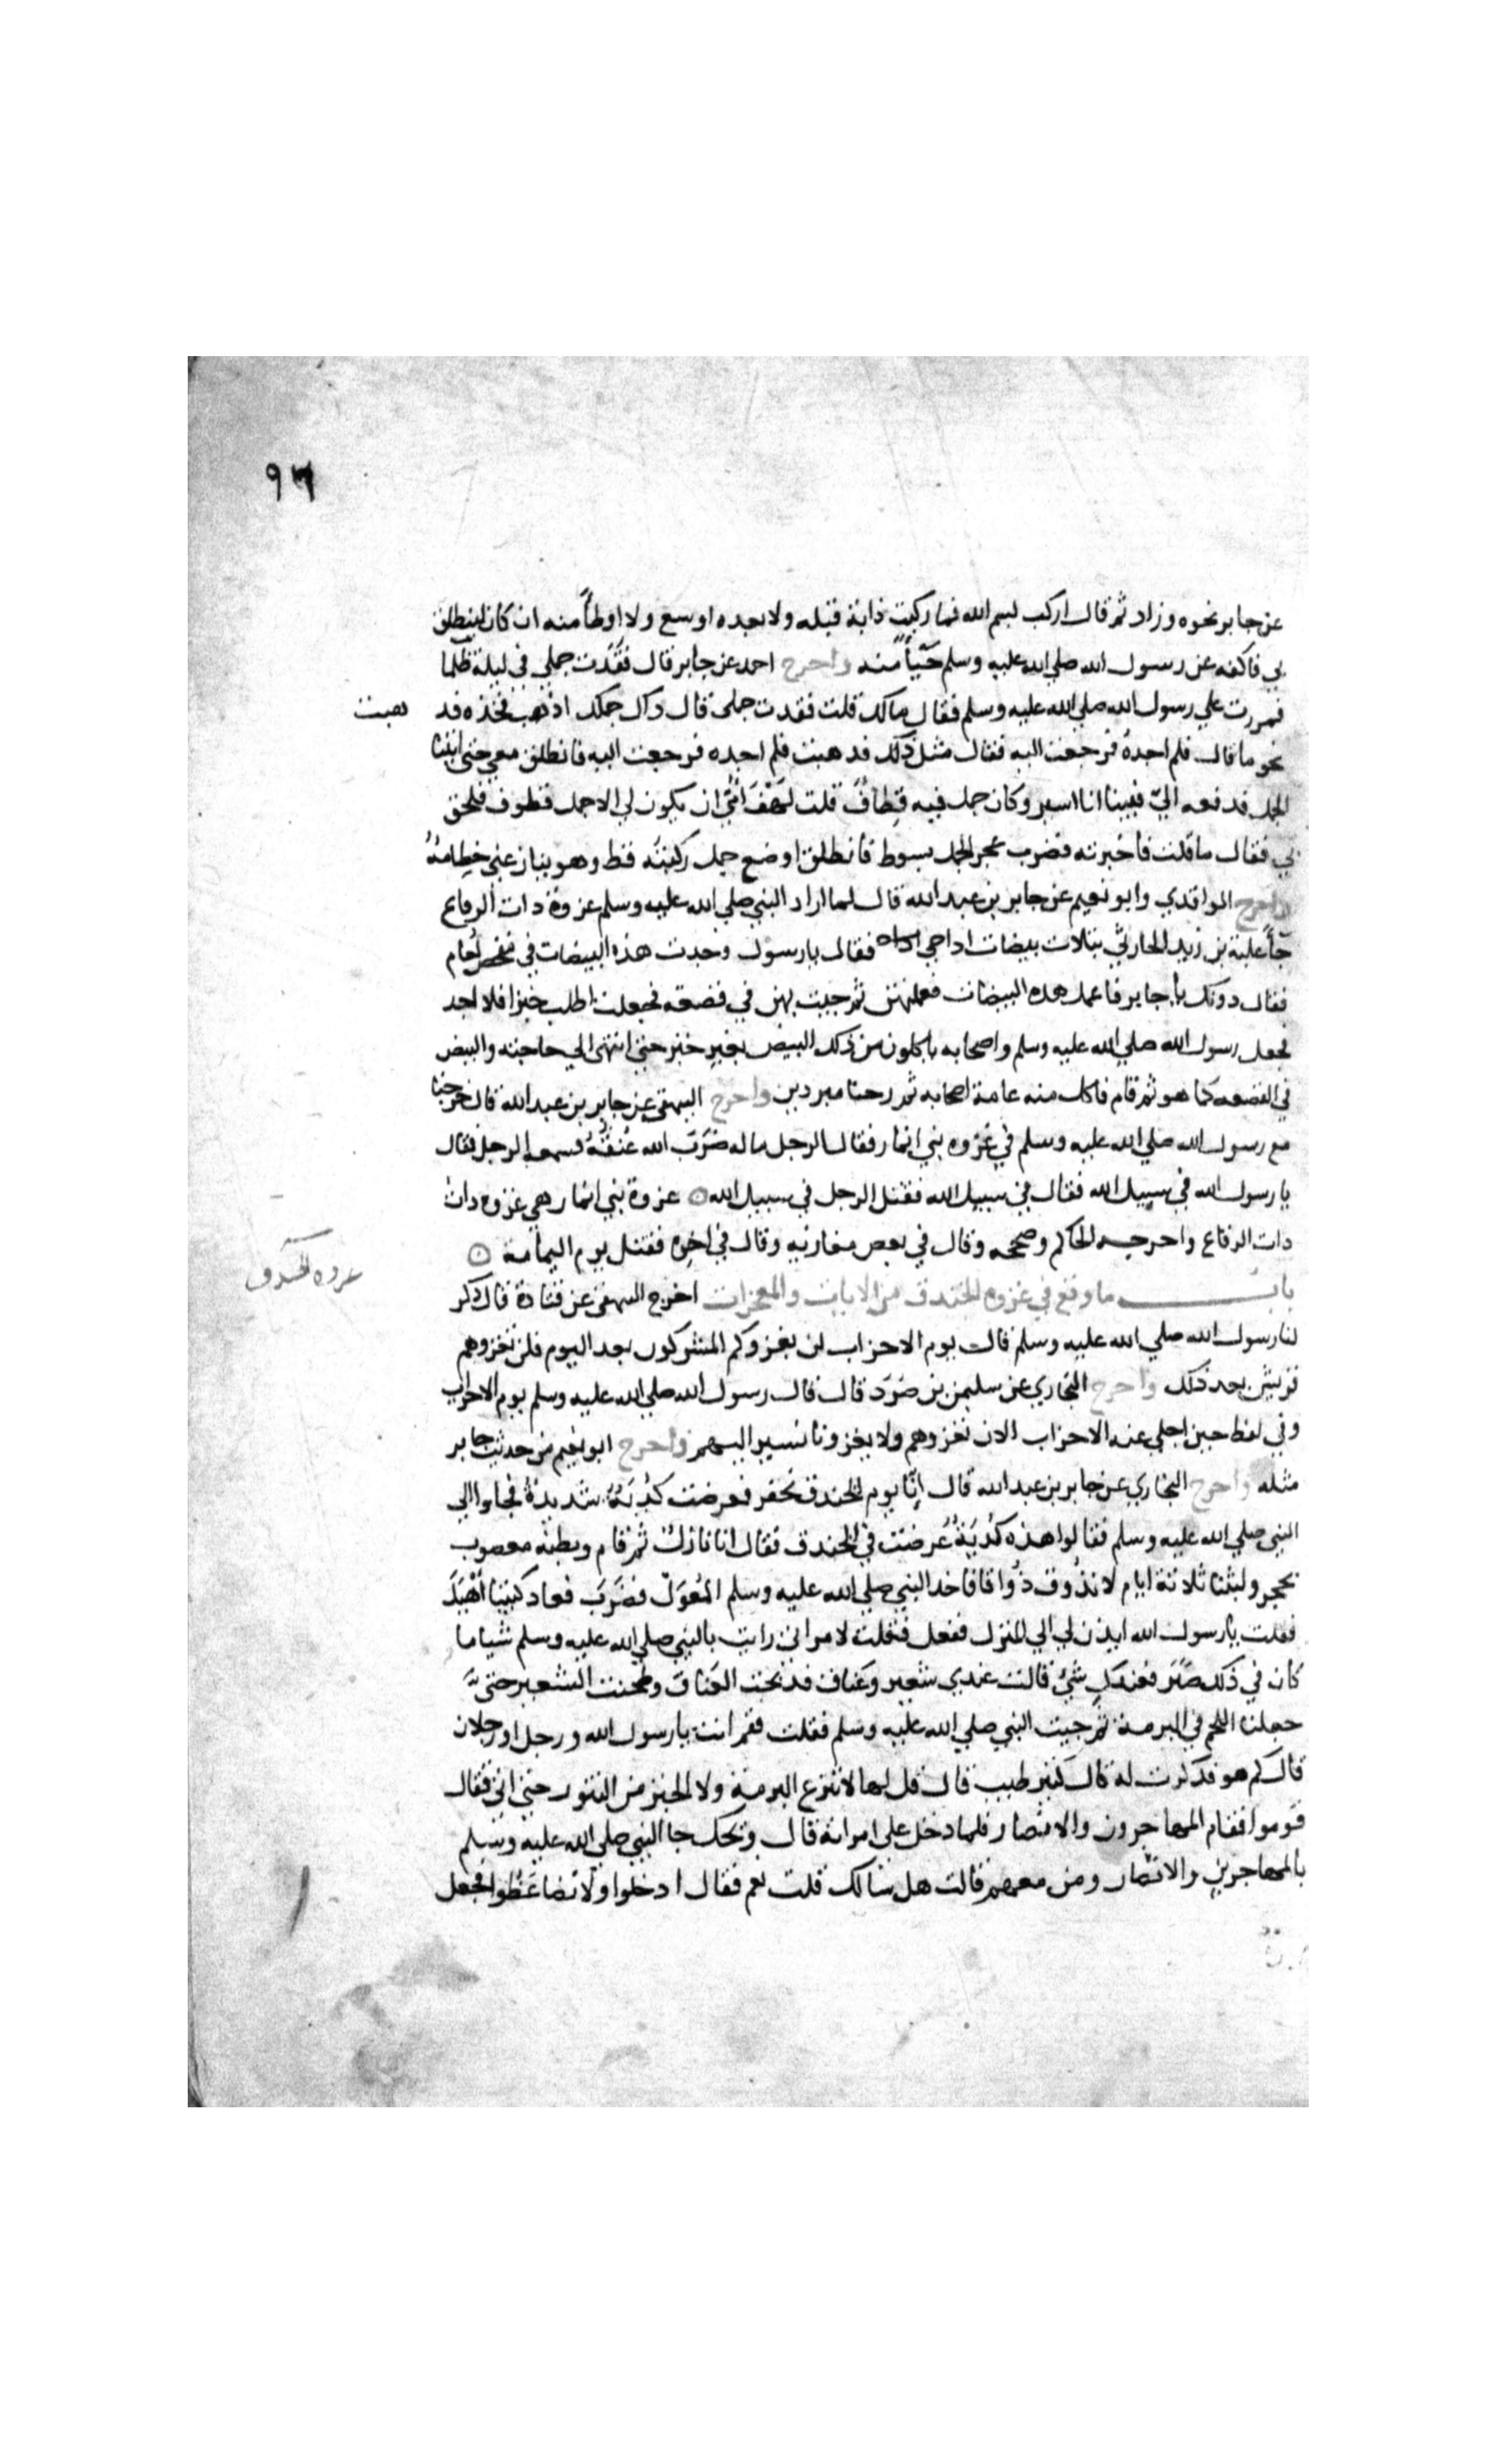 ٩٦
عن جابر نحوه وزاد ثم قال اركب بسم الله فما ركبت دابة قبله ولا بعده اوسع ولا اوطأ منه ان كان لينطلق
بي فاكفه عن رسول الله صلي الله عليه وسلم حَيَاً منه واخرج احمد عن جابر قال فقَدت جملي في ليلة ظلما
فمررت علي رسول الله صلي الله عليه وسلم فقال مالك قلت فقدت جملي قال ذاك جملك اذهب فخذه فد
هبت
نحو ما قال فلم اجده فرجعت اليه فقال مثل ذلك فدهبت فلم اجده فرجعت اليه فانطلق معي حتي اتينا
الجمل فدفعه اليّ فبينا انا اسير وكان جمل فيه قِطافٌ قلت لهفَ امّي ان يكون لي الا جمل قطوف فلحق
بي فقال ما قلت فاخبرته فضرب عجز الجمل بسوط فانطلق اوضع جمل ركبتُه قط وهو ينازعني خِطامهُ
واخرج الواقدي وابو نعيم عن جابر بن عبد الله قال لما اراد النبي صلي الله عليه وسلم غزوة دات الرقاع
جاَ علبة بن زيد الحارثي بثلاث بيضات اداحي فقال يا رسول وجدت هذه البيضات في مفحص نعام
فقال دونك يا جابر فاعمل هده البيضات فعملتهن ثم جيت بهن في قصعه فجعلت اطلب خبزا فلا اجد
فجعل رسول الله صلي الله عليه وسلم واصحابه ياكلون من ذلك البيض بغير خبز حتي انتهى الي حاجته والبيض
في القصعه كما هو ثم قام فاكل منه عامة اصحابه ثم رحنا مبردين واخرج البيهقي عن جابر بن عبد الله قال خرجنا
مع رسول الله صلي الله عليه وسلم في غزوه بني انمار فقال الرجل ما له ضرَبَ الله عُنقَهُ فسمعه الرجل فقال
يا رسول الله في سبيل الله فقال في سبيل الله فقتل الرجل في سبيل الله ۞ غزوة بني انمار هي غزوه دات
دات الرقاع واخرجه الحاكم وصححه وقال في بعض مغازيه وقال في اخره فقتل يوم اليمامة ۞
غزوه الخندق
باب ما وقع في غزوه الخندق من الايات والمعجزات اخرج البيهقي عن قتادة قال ذكر
لنا رسول الله صلي الله عليه وسلم قال يوم الاحزاب لن يغزوكم المشركون بعد اليوم فلن تغزوهم
قريش بعد ذلك واخرج البخاري عن سليمن بن صرَد قال قال رسول الله صلي الله عليه وسلم يوم الاحزاب
وفي لفظ حين اجلي عنه الاحزاب الان نغزوهم ولا يغزونا نسير اليهم واخرج ابو نعيم من حديث جابر
مثله واخرج البخاري عن جابر بن عبد الله قال اِنّا يوم الخندق نحفر فعرضت كُديَةٌ شديدةٌ فجاوا الي
النبي صلي الله عليه وسلم فقالوا هذه كُديَةٌ عُرضت في الخندق فقال انا نازلٌ ثم قام وبطنه معصوب
بحجر ولبثنا ثلاثة ايام لا نذُوق ذُواقا فاخد النبي صلي الله عليه وسلم المُعوَل فضَرَبَ فعاد كثيبًا اَهْيَلَ
فقلت يا رسول الله ايذن لي الي المنزل ففعل فقلت لامراتي رايت بالنبي صلي الله عليه وسلم شيا ما
كان في ذلك صَبر فعندكِ شيٌ قالت عندي شعير وعَناق فدبحت العَناقَ وطحنت الشعير حتيَّ
جعلنا اللحم في البرمة ثم جيت النبي صلي الله عليه وسلم فقلت فقم انت يا رسول الله ورجل او رجلان
قال كم هو فدكرت له قال كثير طيب قال قل لها لا تنزع البرمة ولا الخبز من التنور حتي اتي فقال
قوموا فقام المهاجرون والانصار فلما دخل علي امراته قال ويحك جا النبي صلي الله عليه وسلم
بالمهاجرين والانصار ومن معهم قالت هل سالك قلت نعم فقال ادخلوا ولا تضاغطُوا فجعل